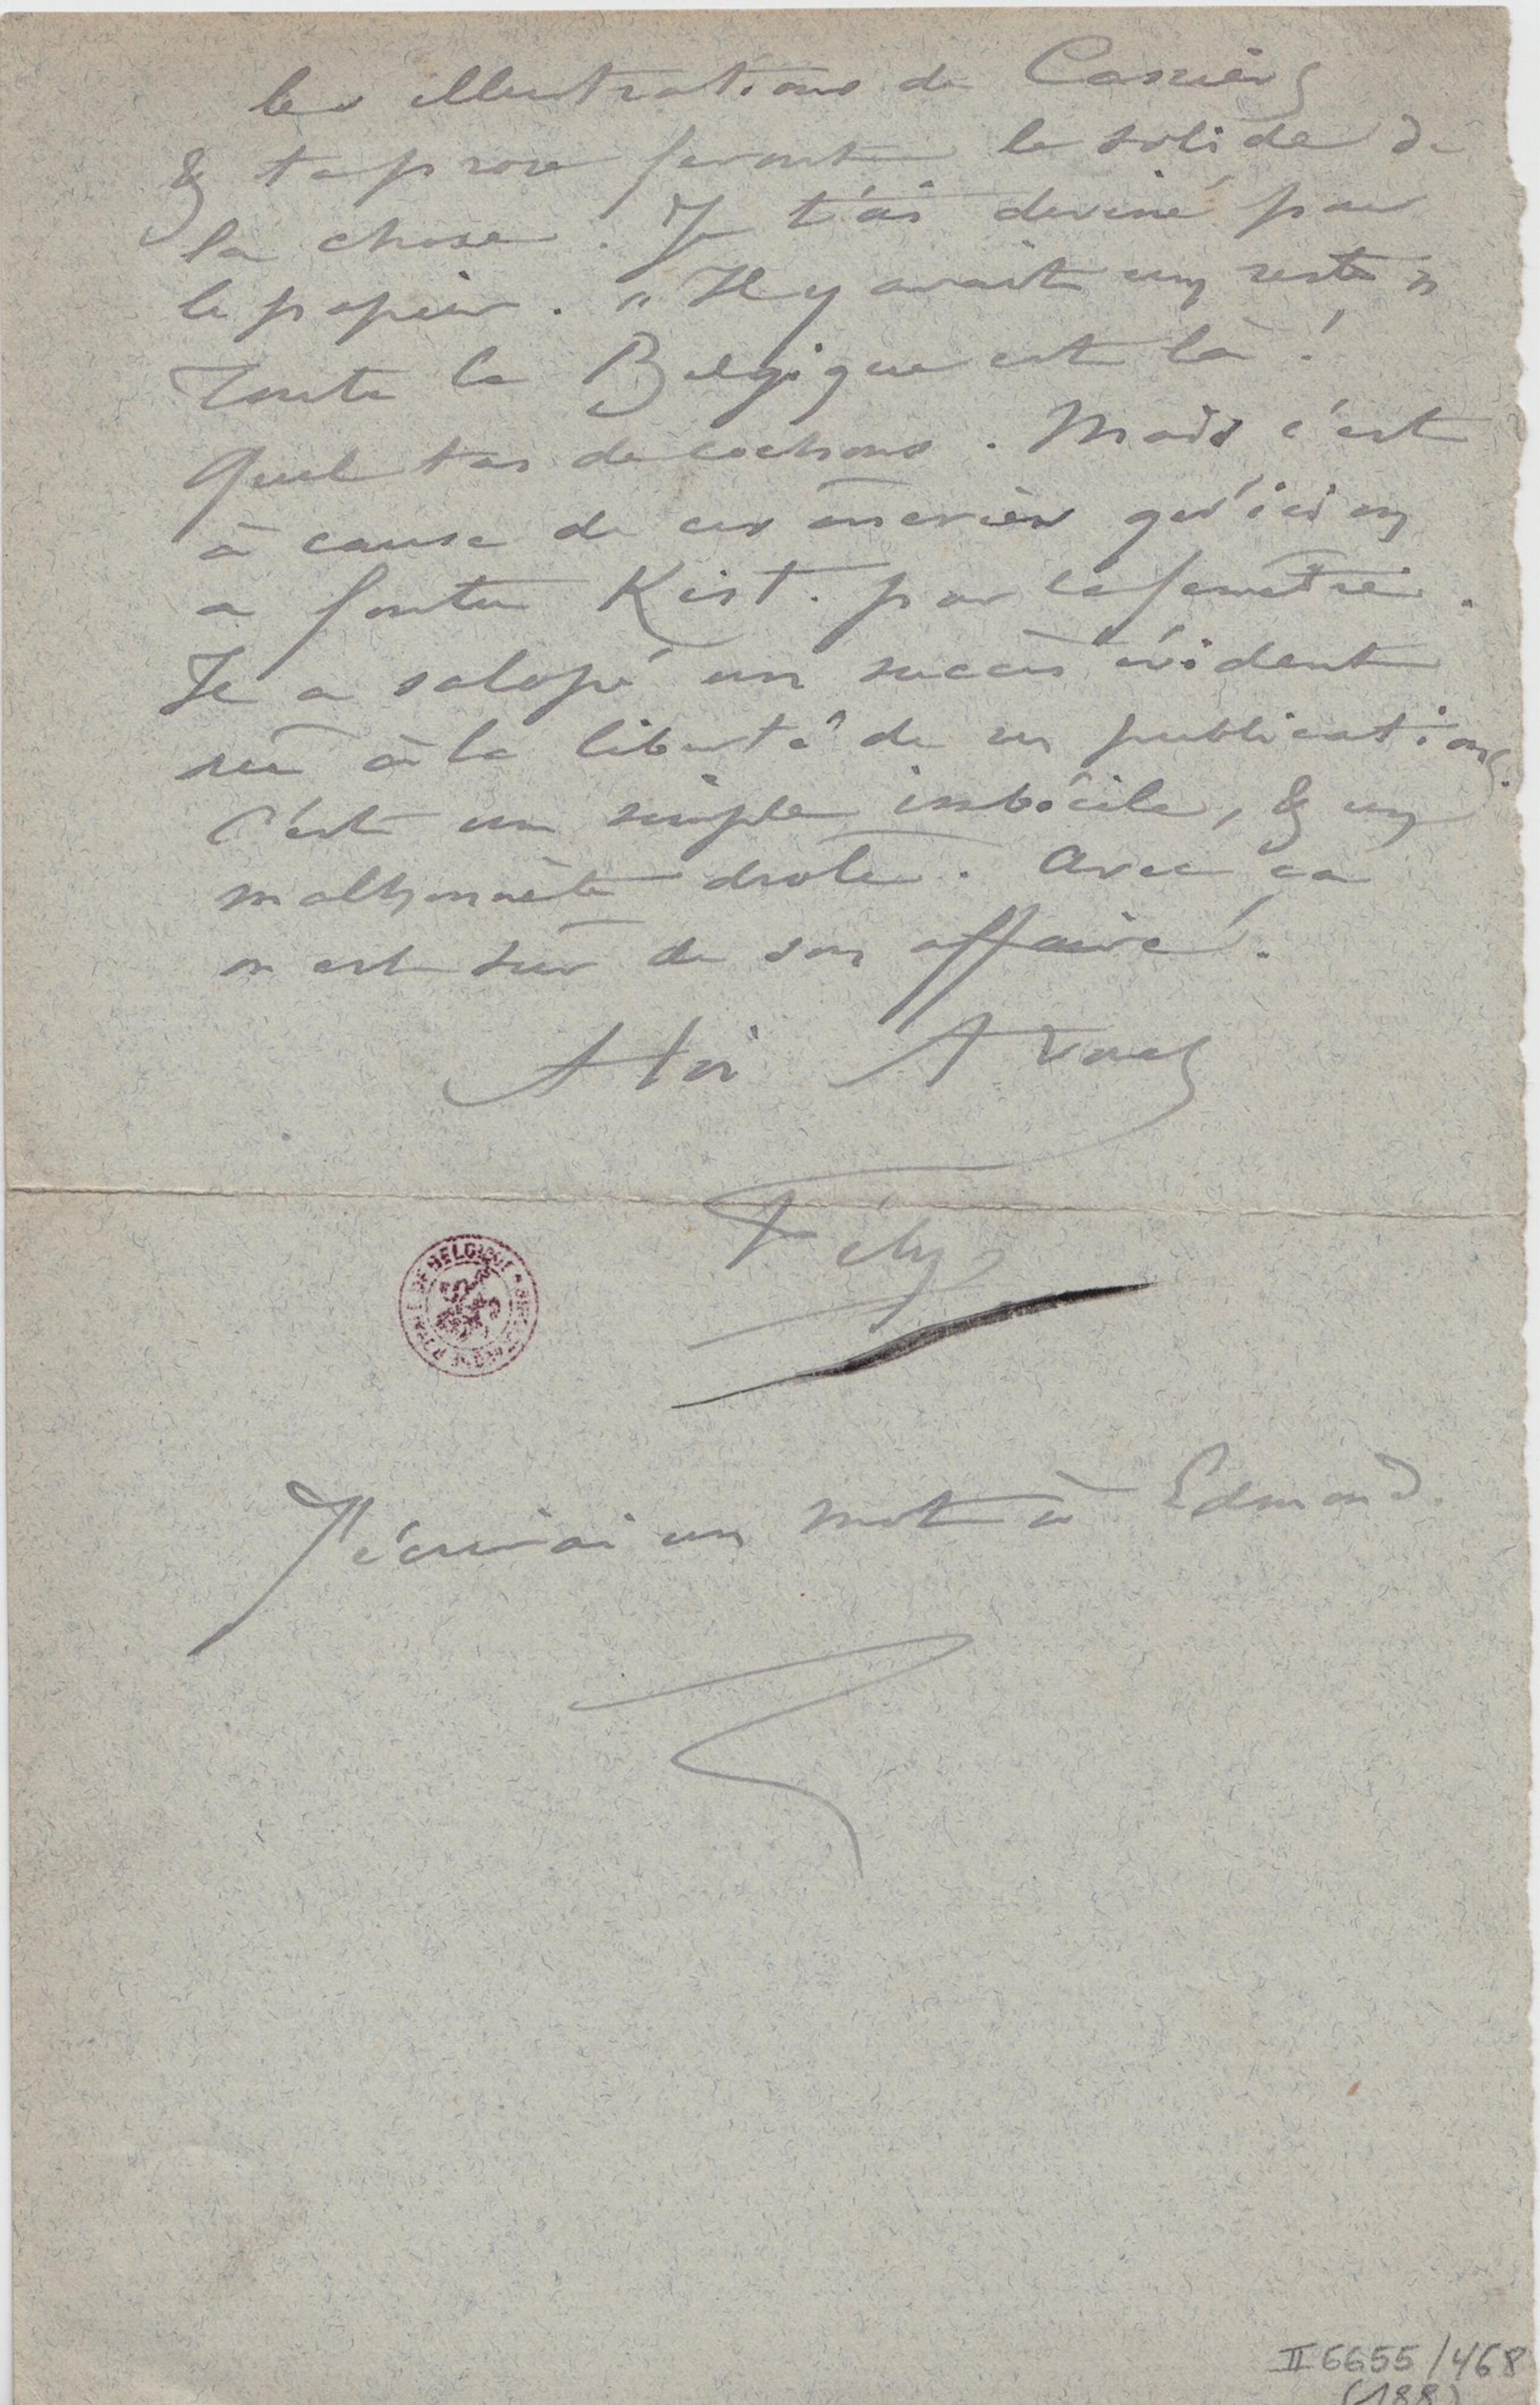 les illustrations de Cassiers
& ta prose feront le solide de
la chose. Je t'ai deviné pour
le papier. « Il y avait un reste »
Toute la Belgique est là !
Quel tas de cochons. Mais c'est
à cause de ces âneries qu'ici on
a foutu Kist. par la fenêtre.
Il a salopé un succès évident
dû à la liberté de ses publications.
C'est un simple imbécile, & un
malhonnête drole. Avec ça
on est sûr de son affaire.
A toi A vous
Fély
J'écrirai un mot à Edmond.
DE BELGIQUE
II 6655/468
(188)